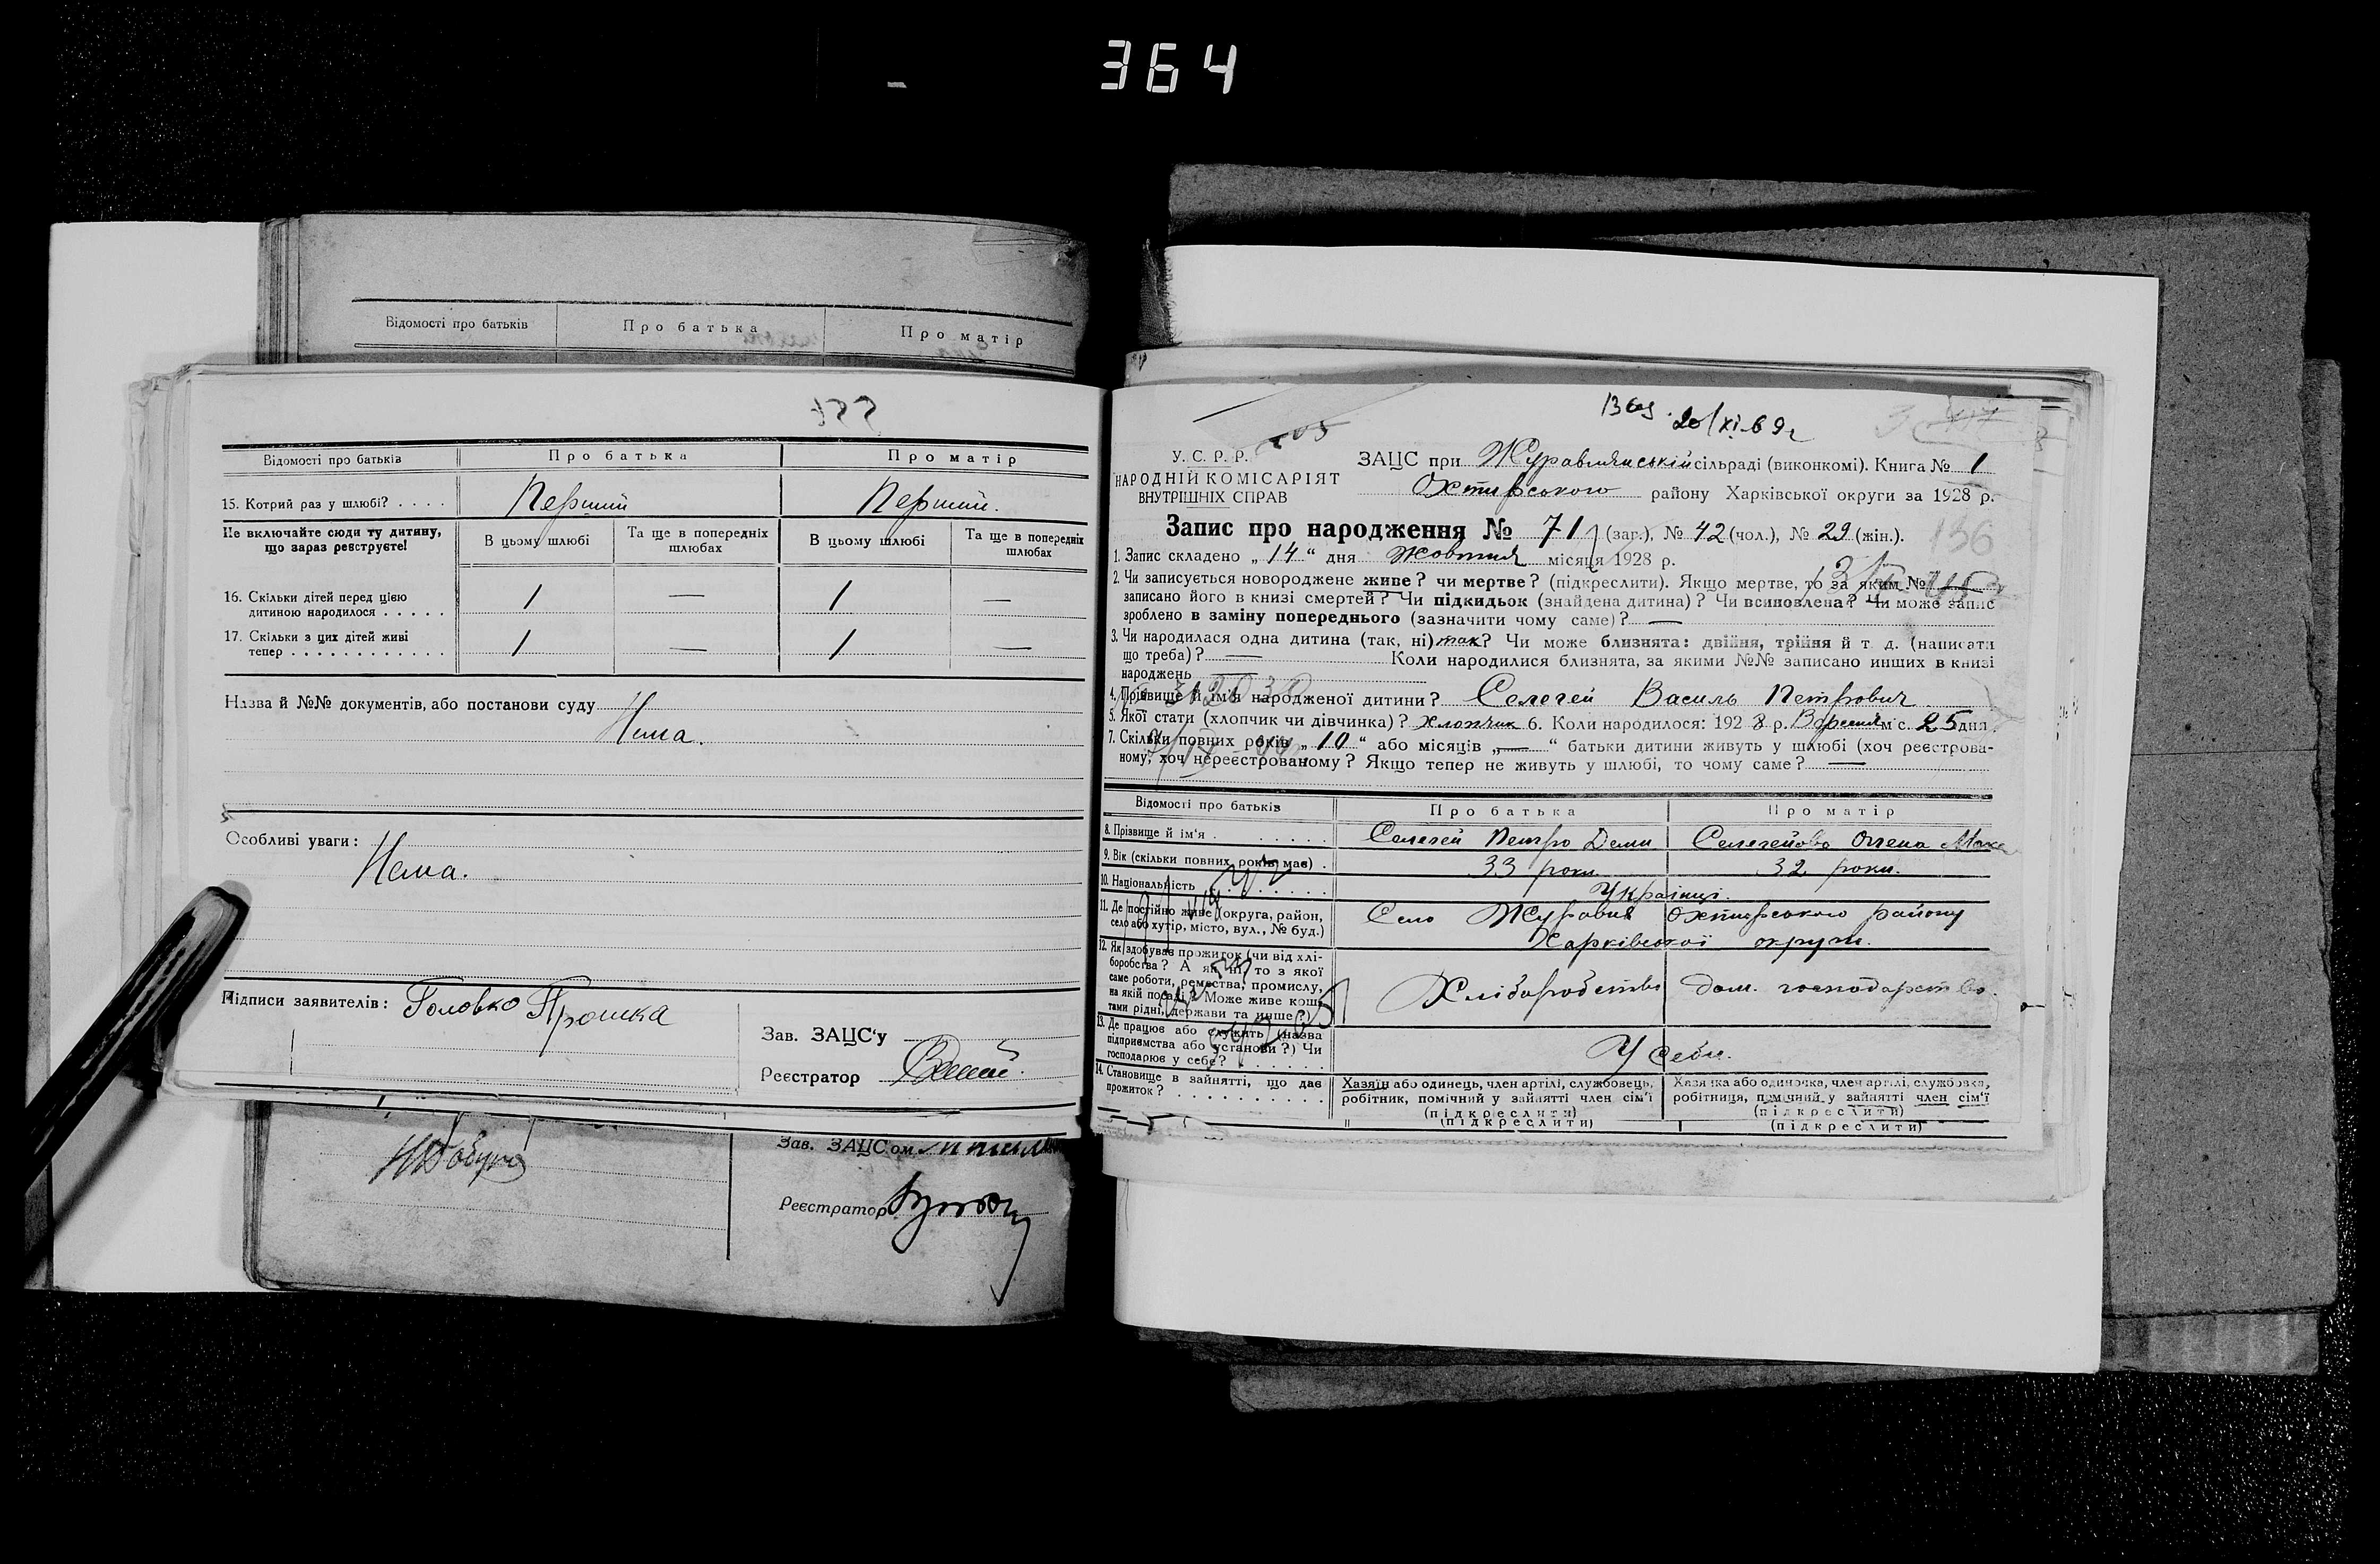 364
Відомості про батьків Про батька Про матір
Відомості про батьків Про батька Про матір
15. Котрий раз у шлюбі? . . . . Перший Перший.
Не включайте сюди ту дитину, що зараз реєструєте!
В цьому шлюбі Та ще в попередніх шлюбах В цьому шлюбі Та ще в попередніх шлюбах
16. Скільки дітей перед цією
дитиною народилося . . . . . 1 — 1 —
17. Скільки з цих дітей живі
тепер . . . . . . . . . . . . 1 — 1 —
Назва й №№ документів, або постанови суду
Нема.
Особливі уваги:
Нема.
Підписи заявителів: Головко
Зав. ЗАЦС'у
Реєстратор
Зав. ЗАЦСом
Реєстратор
20/XI-69г
У. С. Р. Р.
НАРОДНІЙ КОМІСАРІЯТ
ВНУТРІШНІХ СПРАВ
ЗАЦС при Журавлянській сільраді (виконкомі). Книга № 1
Охтирського району Харківської округи за 1928 р.
Запис про народження № 71 (заг.), № 42 (чол.), № 29 (жін.).
136
1. Запис складено „ 14 “ дня Жовтня місяця 1928 р.
2. Чи записується новороджене живе? чи мертве? (підкреслити). Якщо мертве, то за яким №
записано його в книзі смертей? Чи підкидьок (знайдена дитина)? Чи всиновлена? Чи може запис
зроблено в заміну попереднього (зазначити чому саме)? —
3. Чи народилася одна дитина (так, ні) так? Чи може близнята: двійня, трійня й т. д. (написати
що треба)? — Коли народилися близнята, за якими №№ записано инших в книзі
народжень
4. Прізвище й ім'я народженої дитини? Селегей Василь Петрович
5. Якої стати (хлопчик чи дівчинка)? хлопчик 6. Коли народилося: 1928 р. Вересня м с. 25 дня.
7. Скільки повних років „ 10 “ або місяців „ — “ батьки дитини живуть у шлюбі (хоч реєстрова-
ному, хоч нереєстрованому? Якщо тепер не живуть у шлюбі, то чому саме? —
Відомості про батьків Про батька Про матір
8. Прізвище й ім'я . . . . . . Селегей Петро Деми Селегейова Олена Мака
9. Вік (скільки повних років має) . 33 роки 32 роки.
10. Національність . . . . . . . Українці.
11. Де постійно живе (округа, район,
село або хутір, місто, вул., № буд.)
Село Журавне Охтирського району
Харківської округи.
12. Як здобуває прожиток (чи від хлі-
боробства? А як ні, то з якої
саме роботи, ремества, промислу,
на якій посаді? Може живе кош-
тами рідні, держави та инше?)
Хліборобство дом. господарство.
13. Де працює або служить (назва
підприємства або установи?) Чи
господарює у себе? . . . . . . У себе.
14. Становище в зайнятті, що дає
прожиток? . . . . . . . . . .
Хазяїн або одинець, член артілі, службовець,
робітник, помічний у зайнятті член сім'ї
(підкреслити)
Хазяйка або одиночка, член артілі, службовка,
робітниця, помічний у зайнятті член сім'ї
(підкреслити)
(підкреслити) (підкреслити)